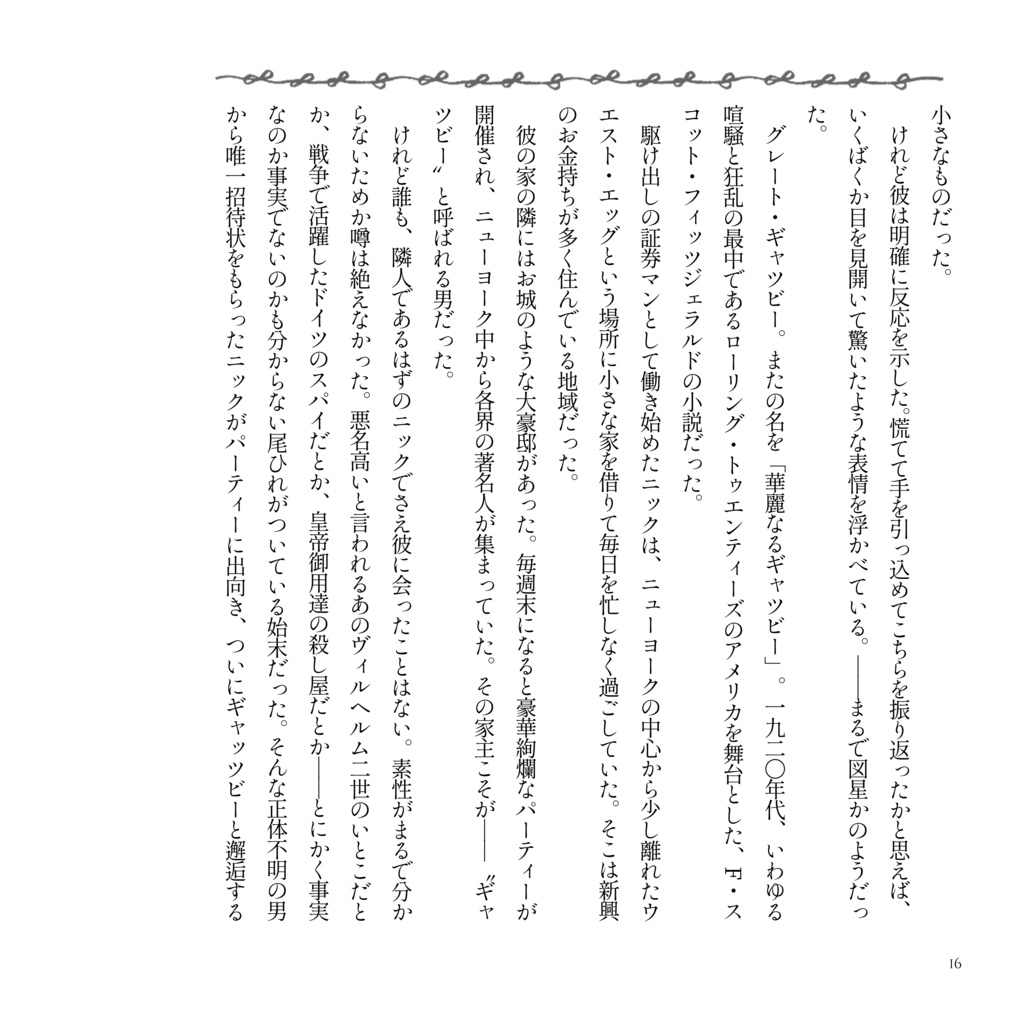 小さなものだった。
けれど彼は明確に反応を示した。慌てて手を引っ込めてこちらを振り返ったかと思えば、
いくばくか目を見開いて驚いたような表情を浮かべている。――まるで図星かのようだっ
た。
グレート・ギャツビー。またの名を「華麗なるギャツビー」。一九二〇年代、いわゆる
喧騒と狂乱の最中であるローリング・トゥエンティーズのアメリカを舞台とした、F・ス
コット・フィッツジェラルドの小説だった。
駆け出しの証券マンとして働き始めたニックは、ニューヨークの中心から少し離れたウ
エスト・エッグという場所に小さな家を借りて毎日を忙しなく過ごしていた。そこは新興
のお金持ちが多く住んでいる地域だった。
彼の家の隣にはお城のような大豪邸があった。毎週末になると豪華絢爛なパーティーが
開催され、ニューヨーク中から各界の著名人が集まっていた。その家主こそが――〝ギャ
ツビー〟と呼ばれる男だった。
けれど誰も、隣人であるはずのニックでさえ彼に会ったことはない。素性がまるで分か
らないためか噂は絶えなかった。悪名高いと言われるあのヴィルヘルム二世のいとこだと
か、戦争で活躍したドイツのスパイだとか、皇帝御用達の殺し屋だとか――とにかく事実
なのか事実でないのかも分からない尾ひれがついている始末だった。そんな正体不明の男
から唯一招待状をもらったニックがパーティーに出向き、ついにギャッツビーと邂逅する
16